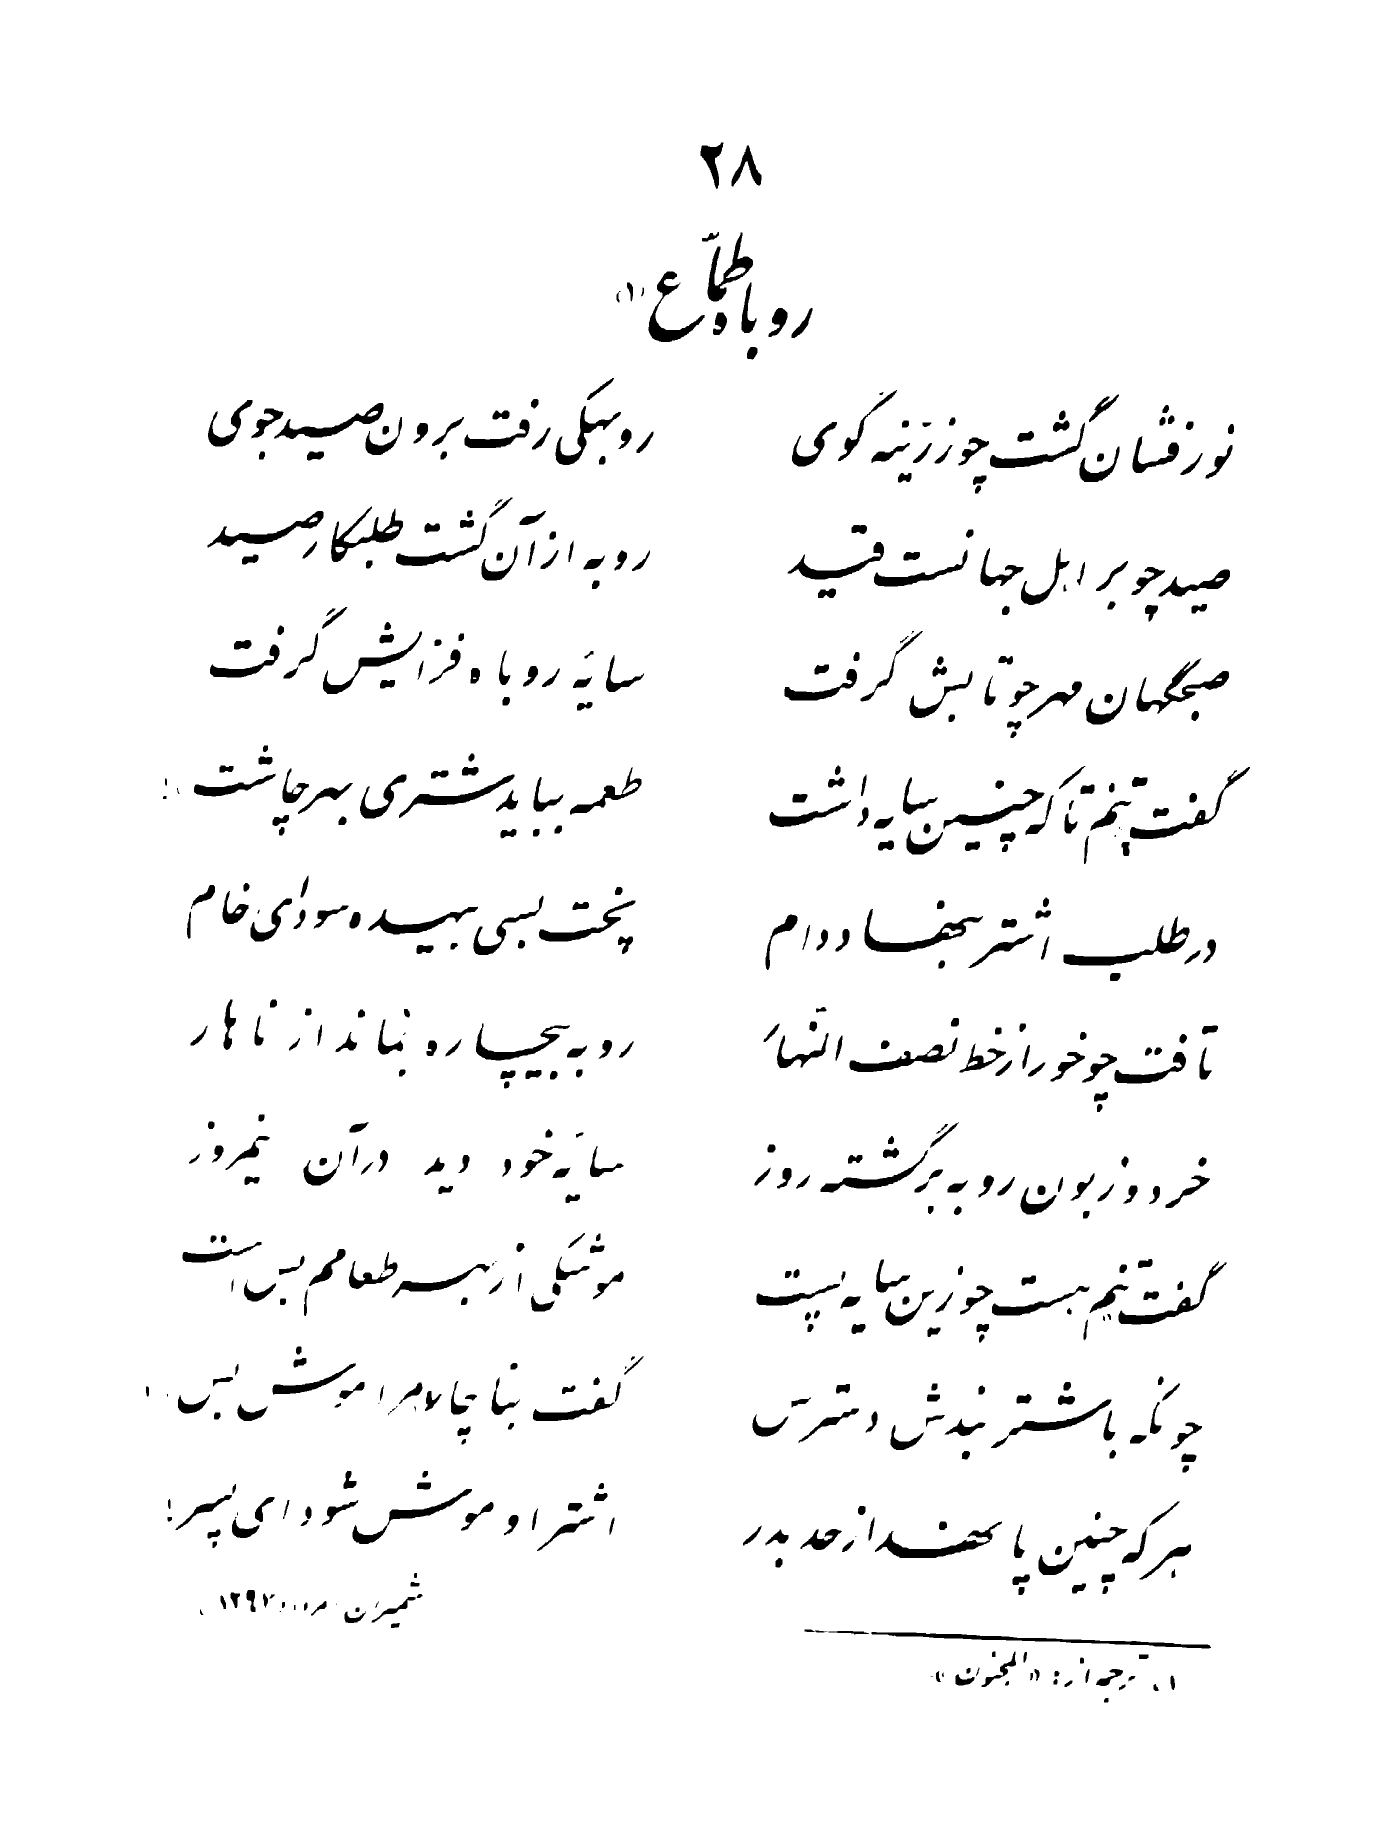 ۲۸
روباه طمّاع (۱)
نورفشان گشت چو زرّینه گوی روبهکی رفت برون صیدجوی
صید چو بر اهل جهانست قید روبه از آن گشت طلبکار صید
صبحگهان مهر چو تابش گرفت سایهٔ روباه فزایش گرفت
گفت تنم تا که چنین سایه داشت طعمه بباید شتری بهر چاشت!
در طلب اشتر بجفا و دام پخت بسی بیهده سودای خام
تافت چو خور از خط نصف النّهار روبه بیچاره بماند از ناهار
خرد و زبون روبه برگشته روز سایهٔ خود دید در آن نیمروز
گفت تنم هست چو زین سایه پست موشکی از بهر طعامم بس است
چونکه باشتر نبدش دسترس گفت بناچار مرا موش بس
هر که چنین پا نهد از حد بدر اشتر او موش شود ای پسر!
شمیران ۱۲۹۷
۱. ترجمه از: «المجنون»